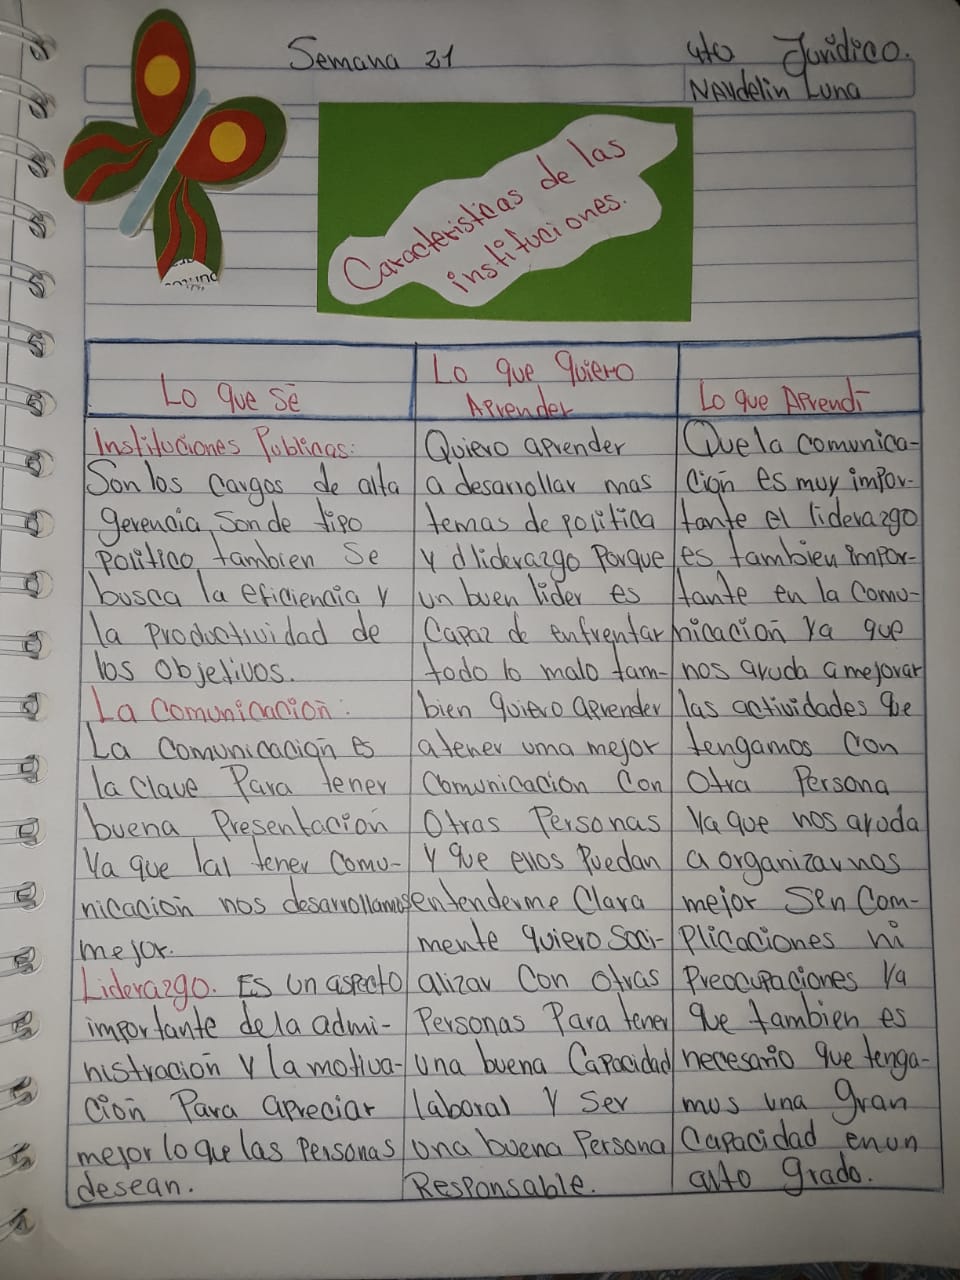 Semana 21
4to Juridico.
Naudelin Luna
Caracteristicas de las
instituciones.
Lo que sé
Instituciones Publicas:
Son los cargos de alta
gerencia, son de tipo
Politico, tambien se
busca la eficiencia y
la Productividad de
los objetivos.
La Comunicación:
La Comunicación es
la Clave Para tener
buena Presentación
Ya que lal tener comu-
nicación nos desarrollamos
mejor.
Liderazgo. Es un aspecto
importante de la admi-
nistración y la motiva-
ción Para apreciar
mejor lo que las Personas
desean.
Lo que Quiero
Aprender
Quiero aprender
a desarrollar mas
temas de politica
y d liderazgo Porque
un buen lider es
Capaz de enfrentar
todo lo malo tam-
bien quiero aprender
a tener una mejor
Comunicacion Con
Otras Personas
y que ellos Puedan
entenderme Clara
mente quiero soci-
alizar Con otras
Personas Para tener
una buena Capacidad
laboral y Ser
una buena Persona
Responsable.
Lo que Aprendí
Que la comunica-
ción es muy impor-
tante el liderazgo
es tambien impor-
tante en la Comu-
nicación Ya que
nos ayuda a mejorar
las actividades qe
tengamos Con
Otra Persona
Ya que nos ayuda
a organizarnos
mejor Sen Com-
Plicaciones ni
Preocupaciones Ya
que tambien es
necesario que tenga-
mos una gran
Capacidad en un
alto grado.